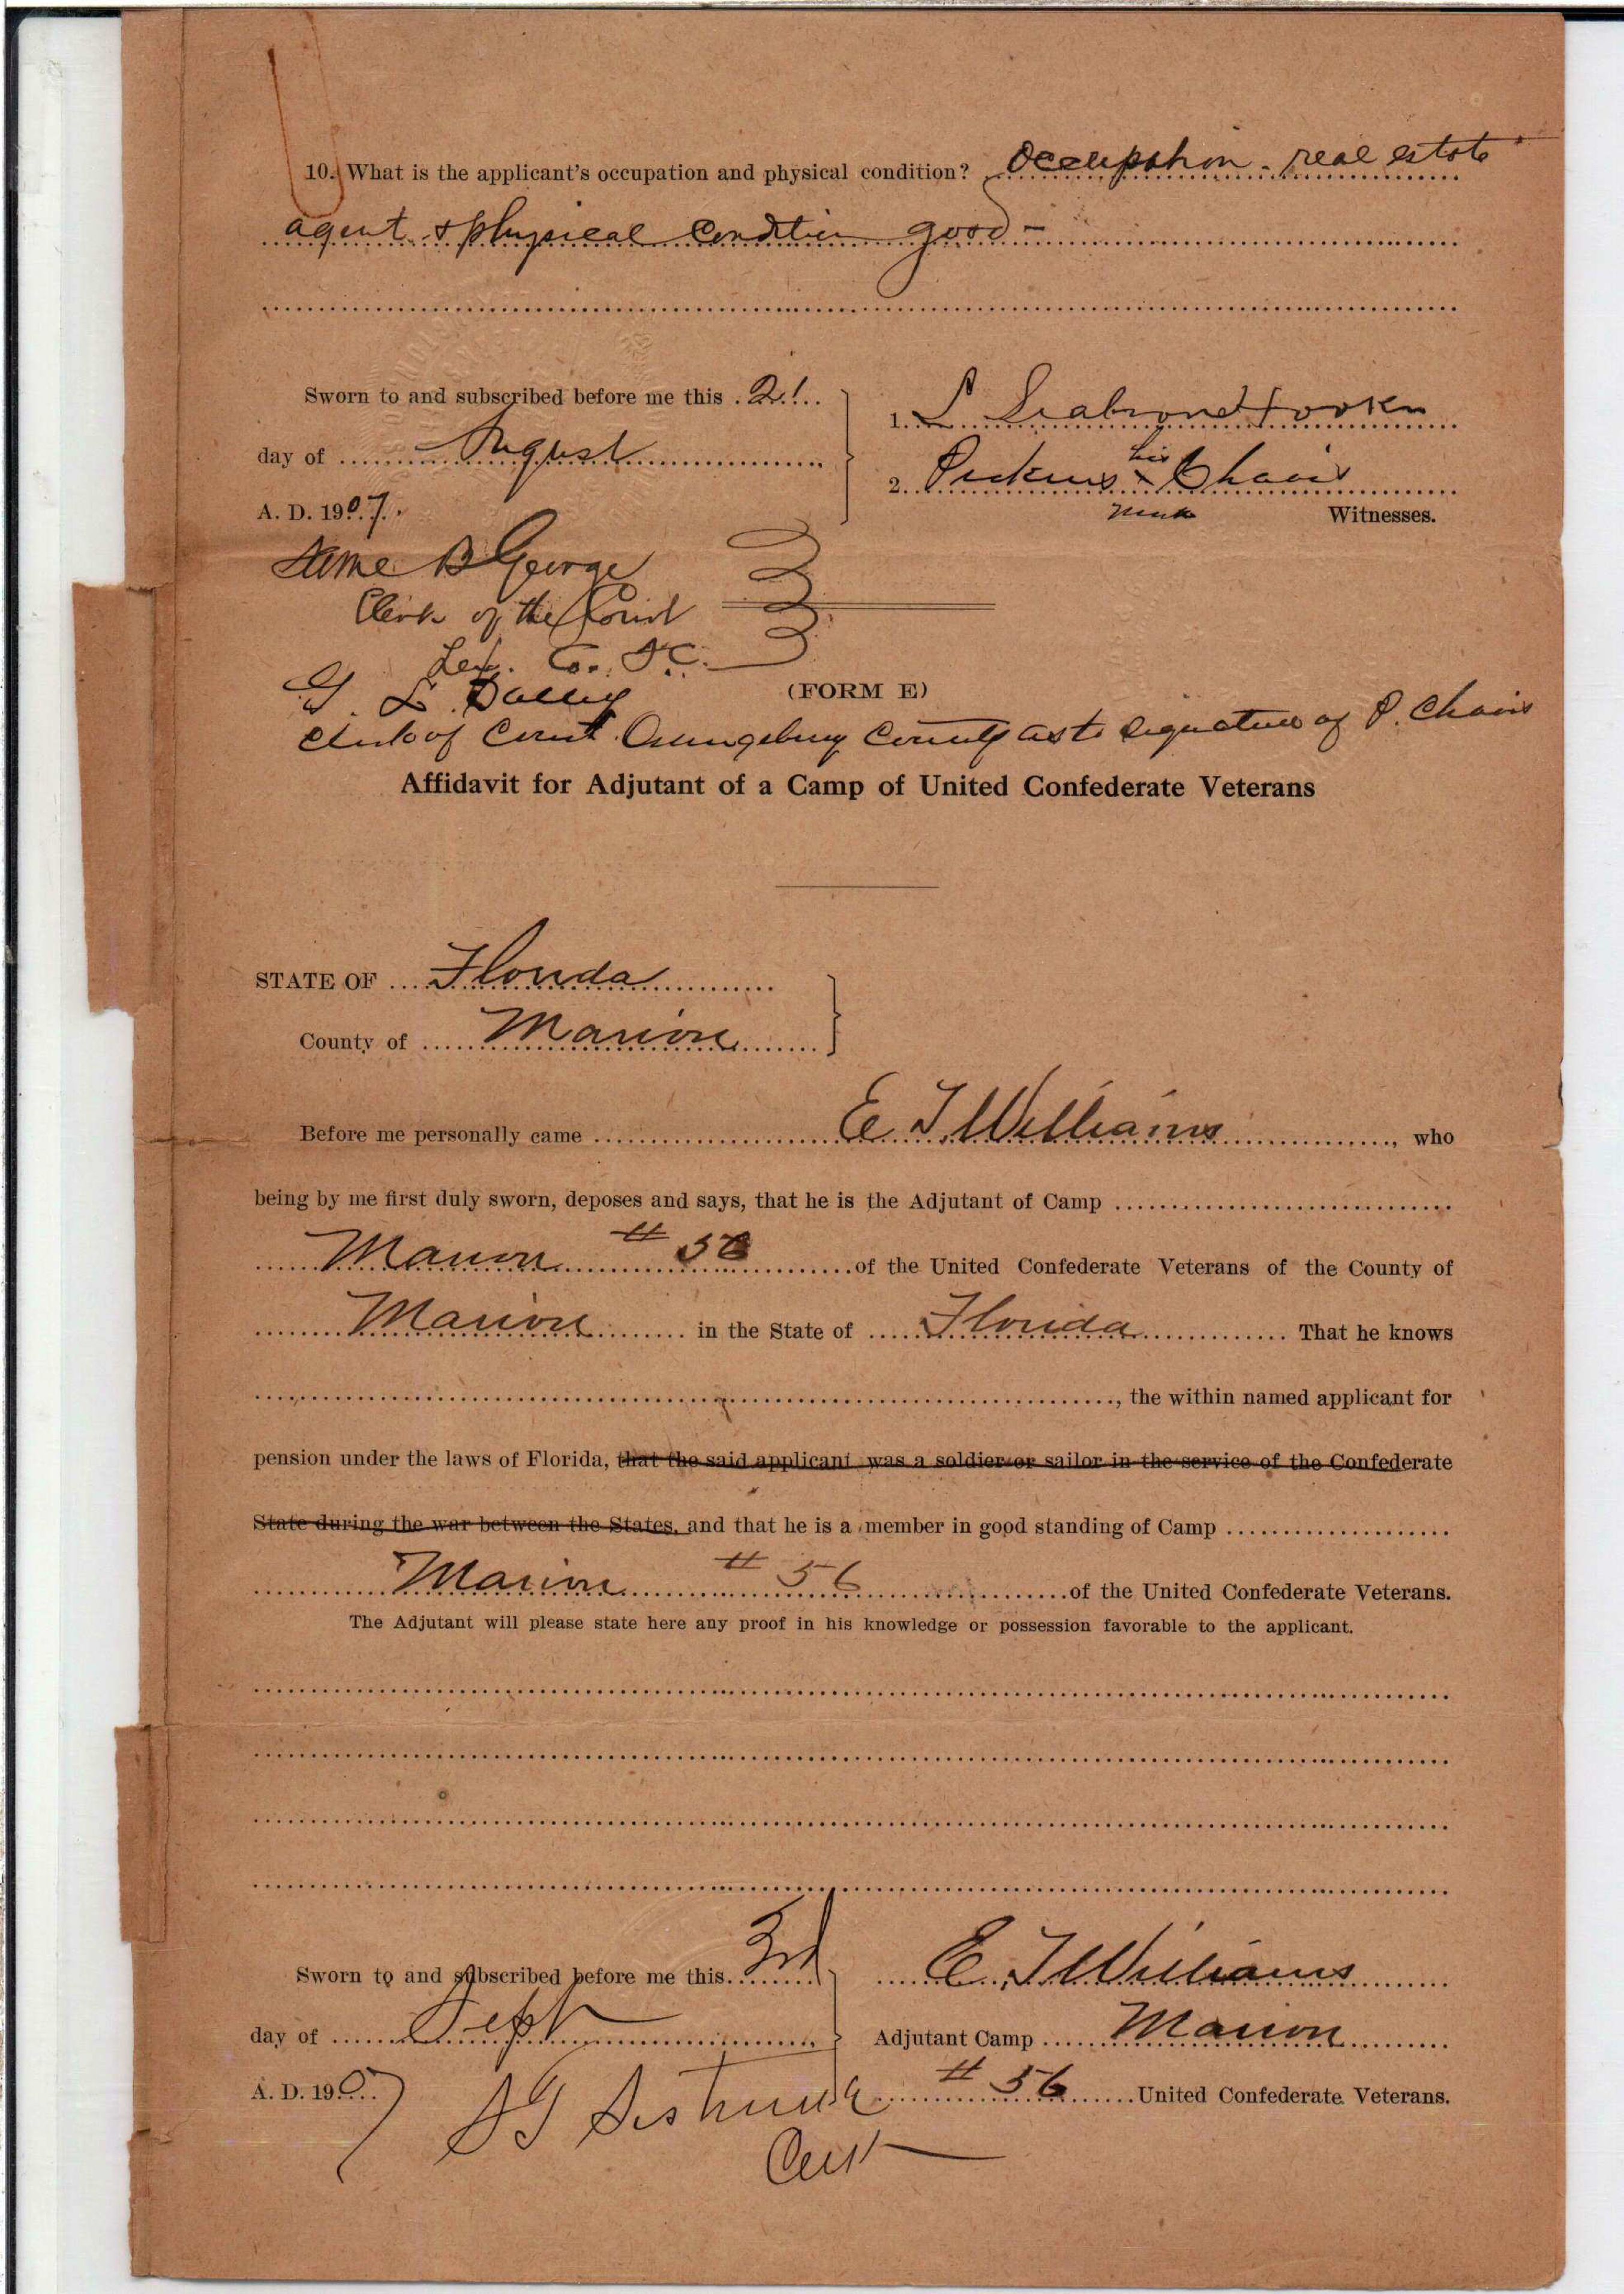 10. What is the applicant's occupation and physical condition? Occupation - real estate
agent & physical condition good -
Sworn to and subscribed before me this 21
day of August
A. D. 1907.
1. L
2. Pickens his x Chavis
mark
Witnesses.
B George
Clerk of the Court
Lex. Co. S.C.
(FORM E)
G. L.
Clerk of Court Orangeburg County as to signature of P. Chavis
Affidavit for Adjutant of a Camp of United Confederate Veterans
STATE OF Florida
County of Marion
Before me personally came E T Williams, who
being by me first duly sworn, deposes and says, that he is the Adjutant of Camp
Marion # 56 of the United Confederate Veterans of the County of
Marion in the State of Florida That he knows
, the within named applicant for
pension under the laws of Florida, that the said applicant was a soldier or sailor in the service of the Confederate
State during the war between the States, and that he is a member in good standing of Camp
Marion # 56 of the United Confederate Veterans.
The Adjutant will please state here any proof in his knowledge or possession favorable to the applicant.
Sworn to and subscribed before me this 3rd
E. T Williams
day of Sept
Adjutant Camp Marion
A. D. 1907
# 56 United Confederate Veterans.
S T Sistrunk
Clerk